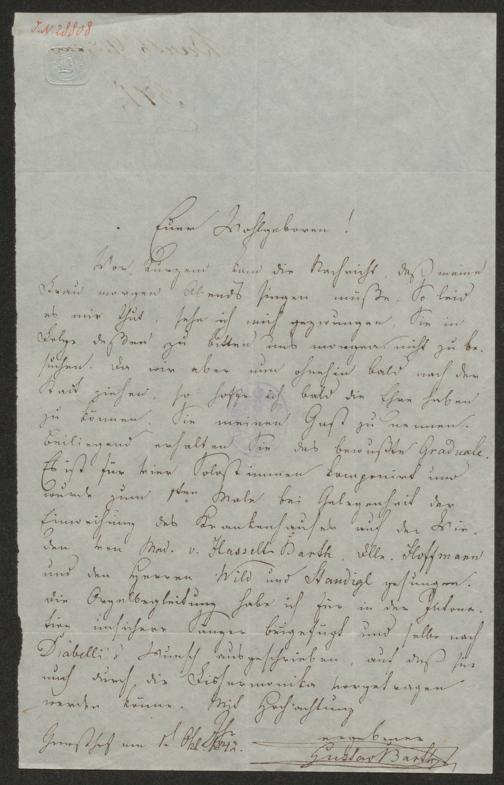 I.N. 28808
Euer Wohlgeboren!
Vor Kurzem kam die Nachricht, daß meine
Frau morgen Abends singen müße. So leid
es mir thut, sehe ich mich gezwungen, Sie in
Folge deßen zu bitten uns morgen nicht zu be-
suchen. Da wir aber nun ohnehin bald nach der
Stadt ziehen, so hoffe ich bald die Ehre haben
zu können, Sie meinen Gast zu nennen.
Beiliegend erhalten Sie das bewußte Graduale.
Es ist für vier Solostimmen komponirt und
wurde zum 1sten Male bei Gelegenheit der
Einweihung des Krankenhauses auf der Wie-
den von Mad. v. Hasselt-Barth, Dlle. Hoffmann
und den Herren Wild und Staudigl gesungen.
Die Orgelbegleitung habe ich für in der Intona-
tion unsichere Sänger beigefügt und selbe nach
Diabelli's Wunsch ausgeschrieben, auf daß sie
auch durch die Fisharmonika vorgetragen
werden könne. Mit Hochachtung
Ihr
ergebener
am 1t 842.
Gustav Barth